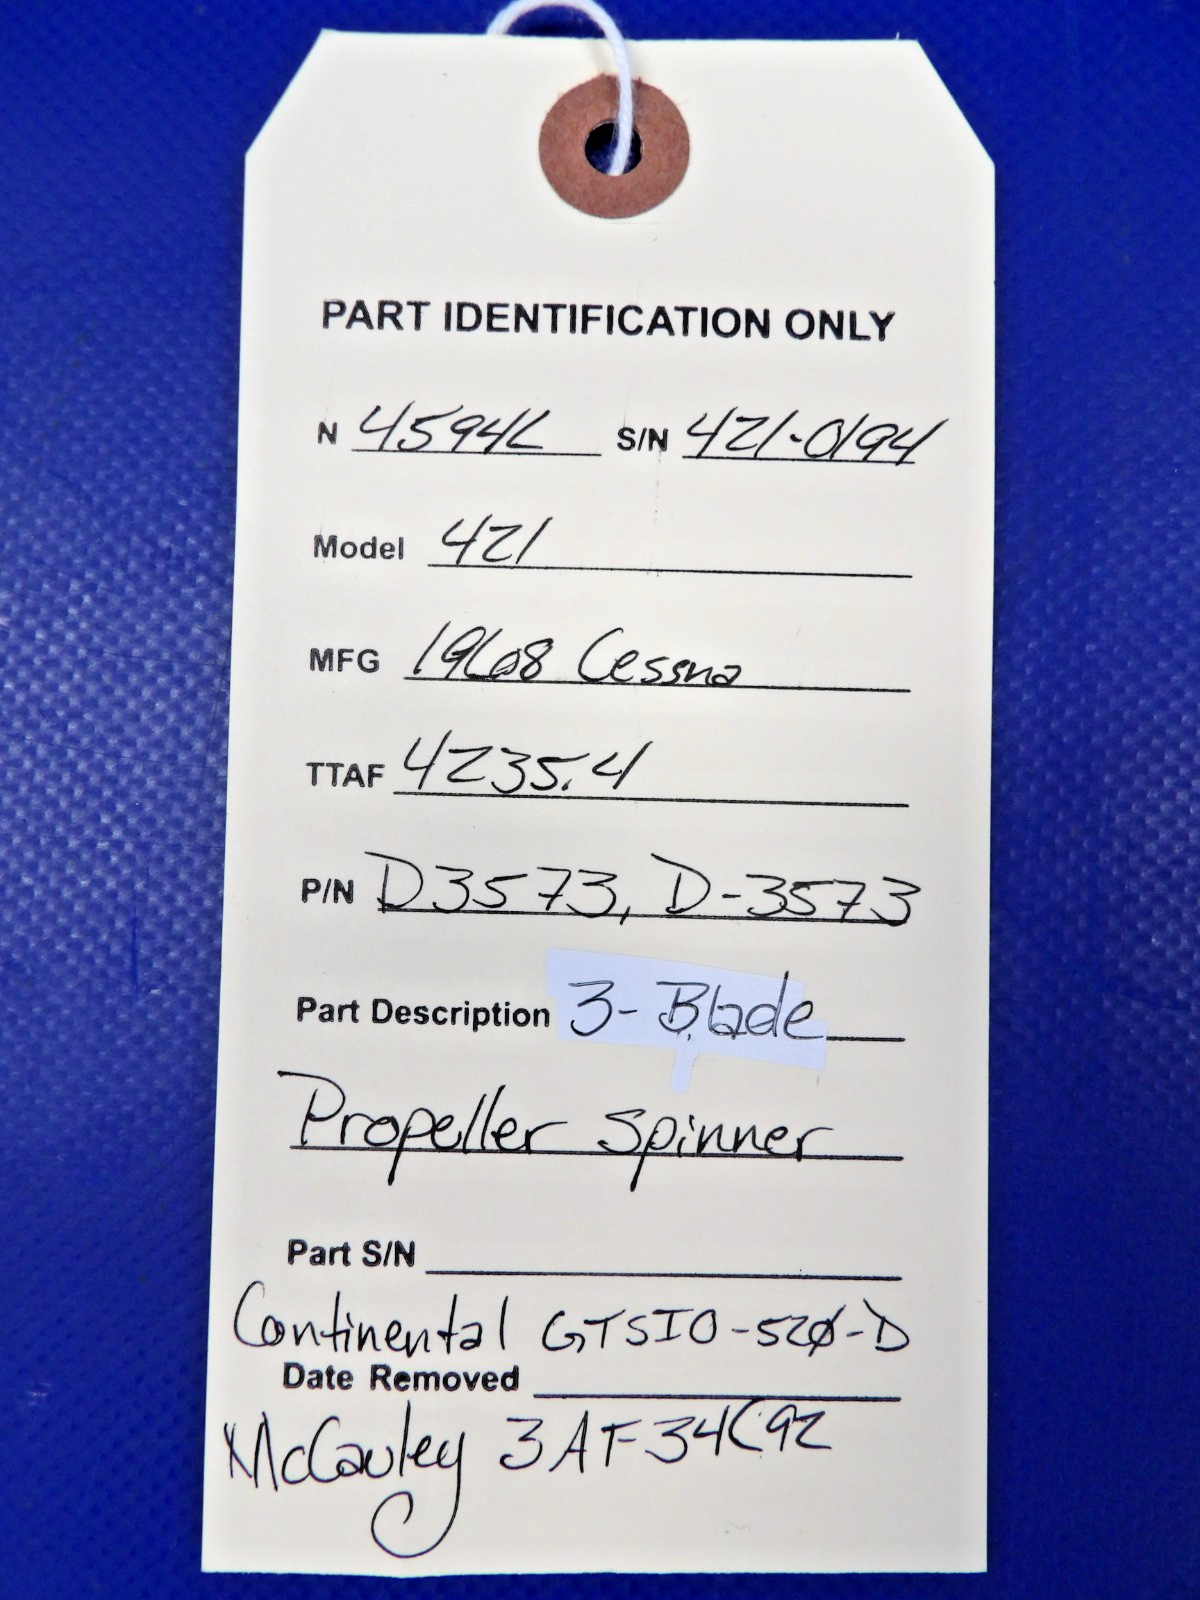 PART IDENTIFICATION ONLY
N 4594L S/N 421-0194
Model 421
MFG 1968 Cessna
TTAF 4235.4
P/N D3573, D-3573
Part Description 3-Blade
Propeller Spinner
Part S/N
Continental GTSIO-520-D
Date Removed
McCauley 3AF34C92